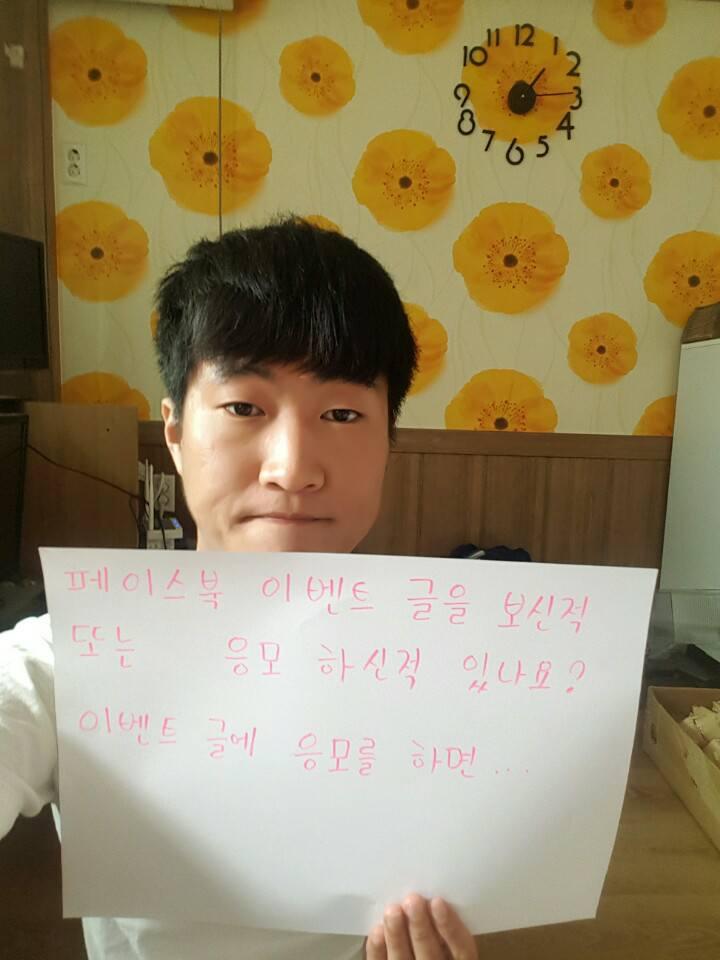 12
11
1
10
2
9
3
8
4
7
5
6
페이스북 이벤트 글을 보신적
또는 응모 하신적 있나요?
이벤트 글에 응모를 하면...